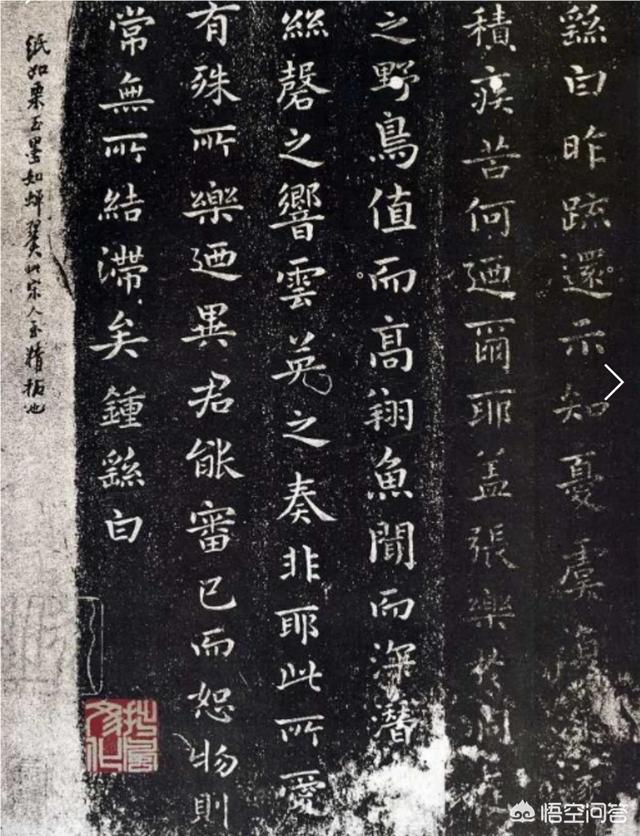 繇白昨疏還示知憂虞復深遂
積疾苦何迺爾耶盖張樂於洞庭
之野鳥值而高翔魚聞而深潛
絲磬之響雲英之奏非耶此所愛
有殊所樂迺異君能審己而恕物則
常無所結滯矣鍾繇白
紙如栗玉墨如蟬翼此宋人至精拓也
悟空问答